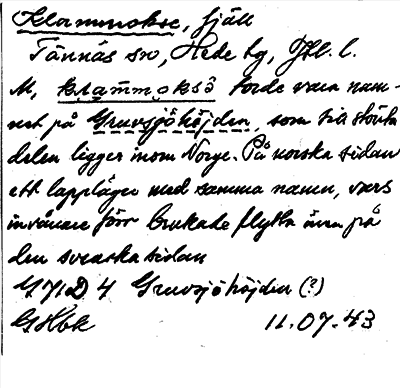 Klammokse, fjäll
Tännäs sn, Hede tg, Jtl. l.
M, klam̄mo̥ksō torde vara nam-
net på Gruvsjöhöjden, som till största
delen ligger inom Norge. På norska sidan
ett lappläger med samma namn, vars
invånare förr brukade flytta över på
den svenska sidan
G 71 D 4 Gruvsjöhöjden (?)
GHbk 11.07.43